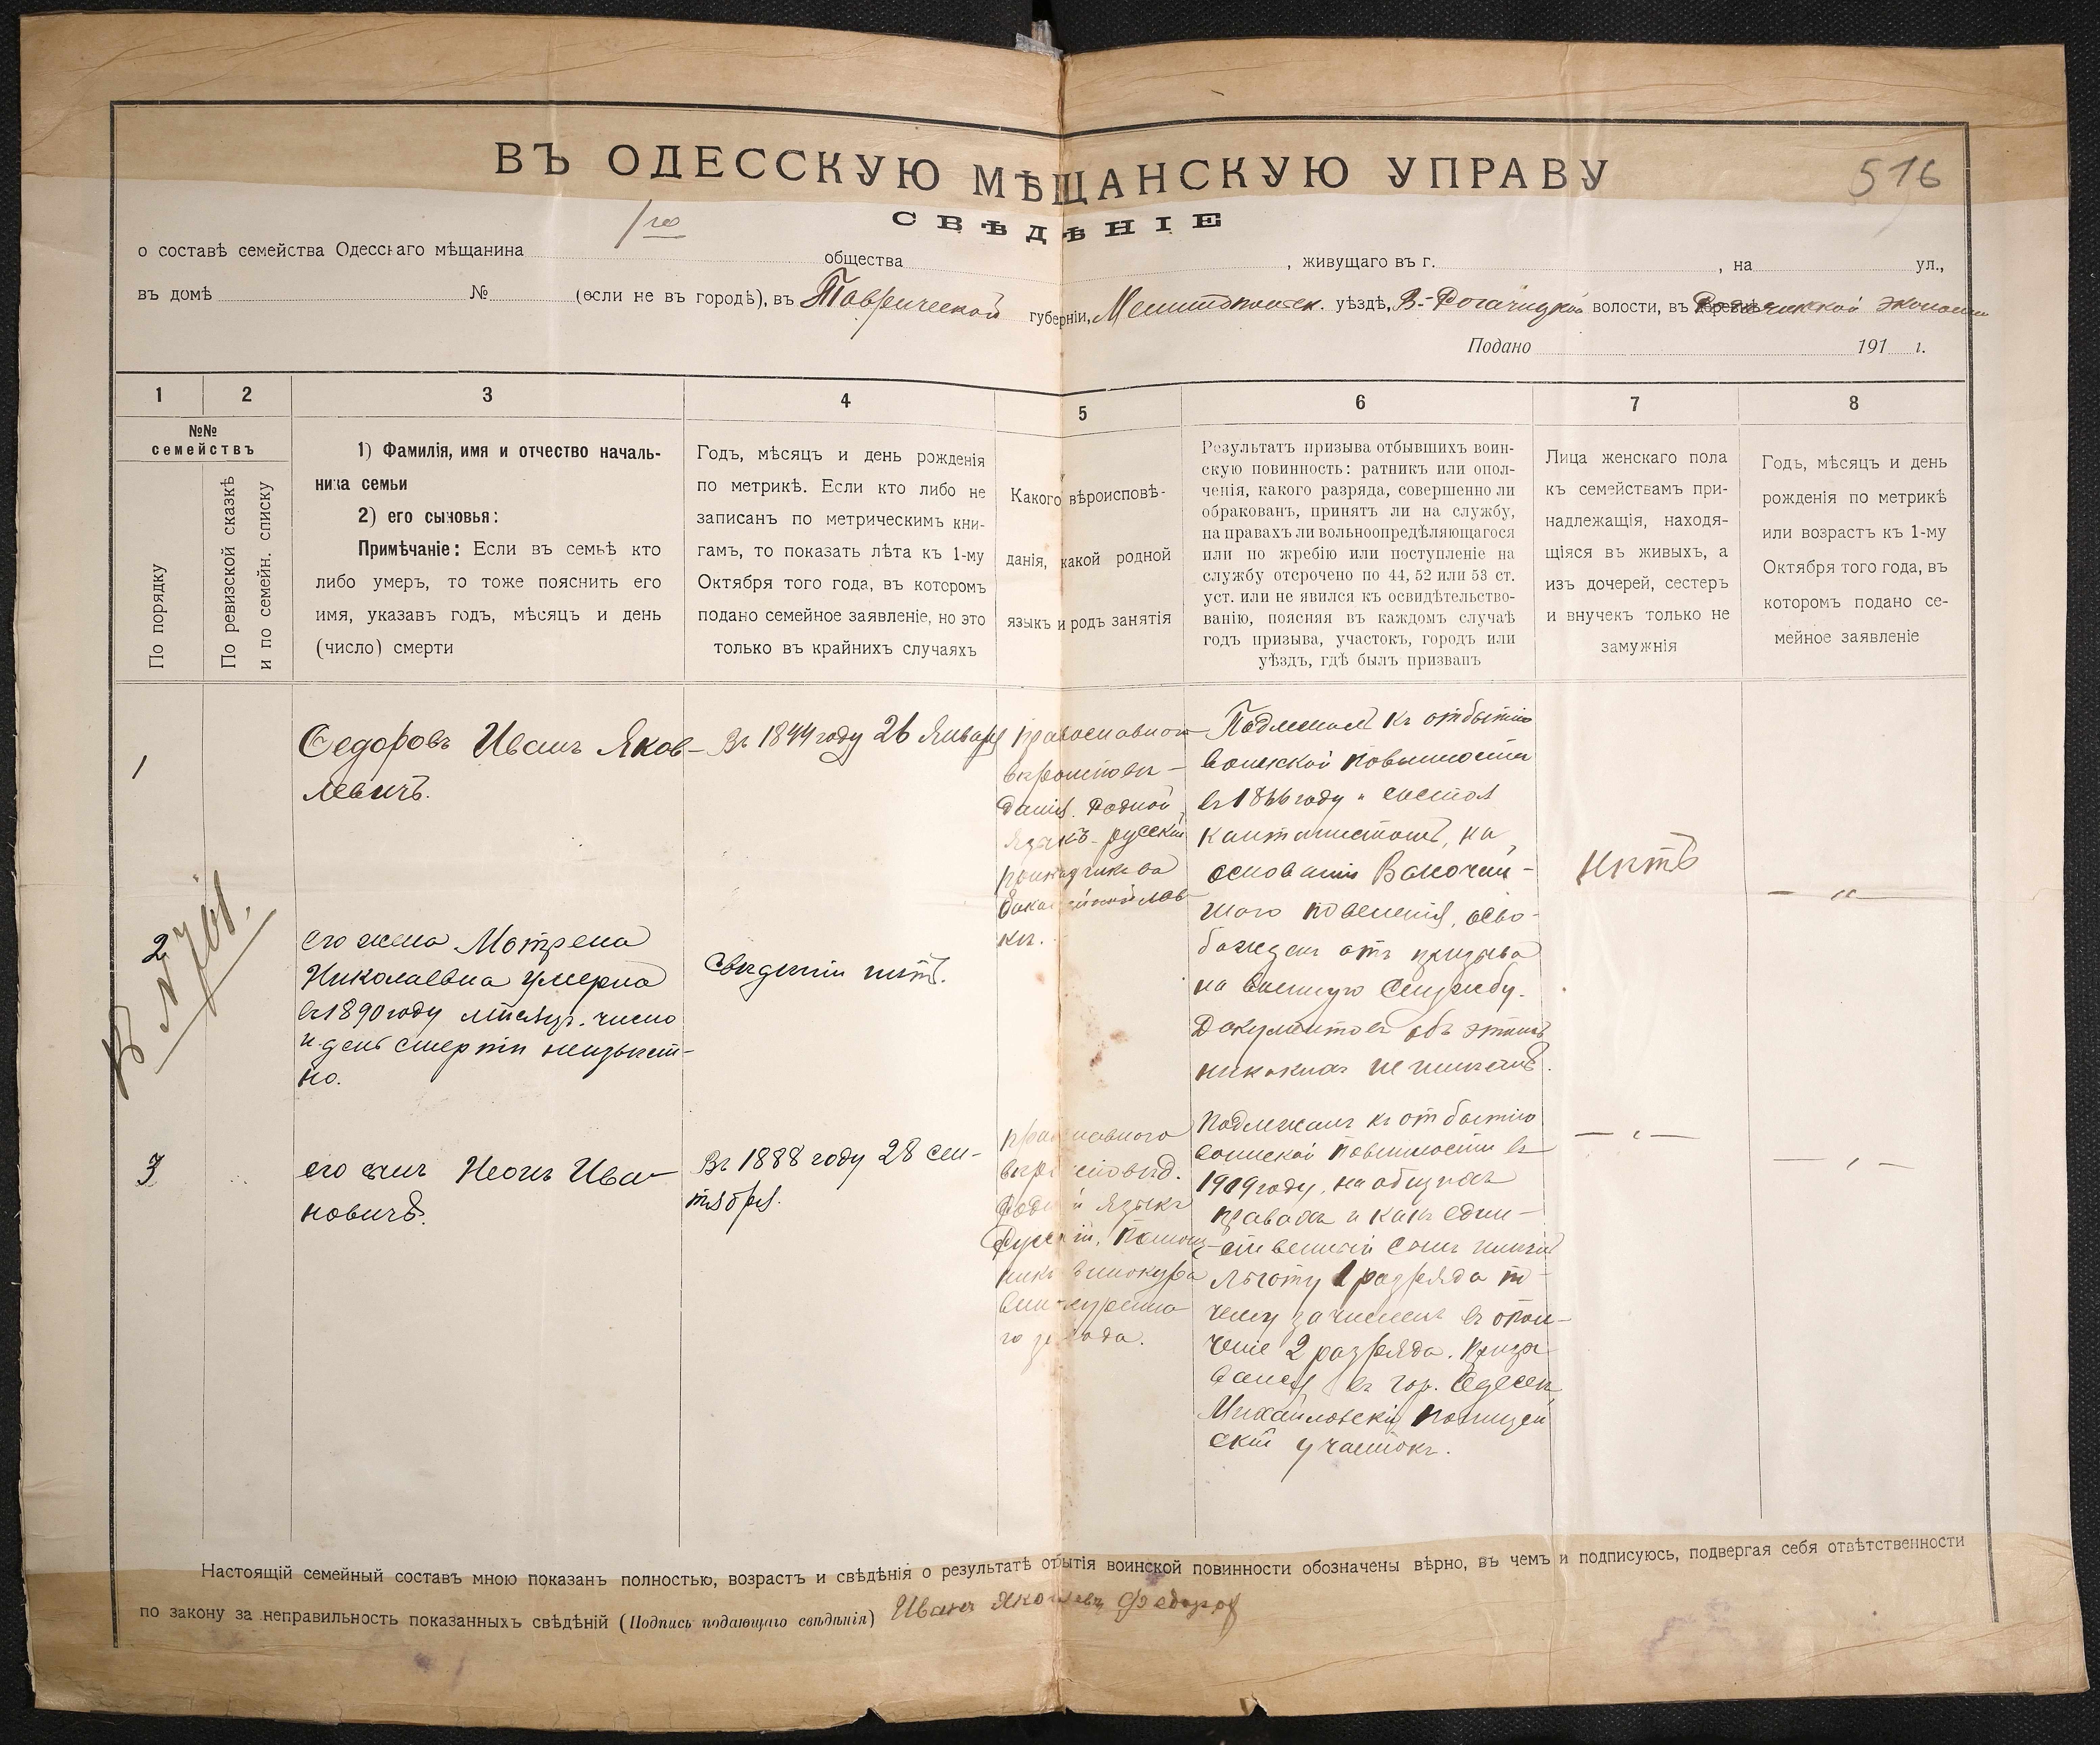 ВЪ ОДЕССКУЮ МѢЩАНСКУЮ УПРАВУ
516
СВѢДѢНІЕ
1го
о составѣ семейства Одесскаго мѣщанина общества , живущаго въ г. , на ул.,
въ домѣ № (если не въ городѣ), въ Таврической губерніи, Мелитопольск. уѣздѣ, В-Рогачицкой волости, въ деревнѣ экономіи
Подано 191 г.
1 2 3 4 5 6 7 8
№№
семействъ
По порядку
По ревизской сказкѣ
и по семейн. списку
1) Фамилія, имя и отчество началь-
ника семьи
2) его сыновья:
Примѣчаніе: Если въ семьѣ кто
либо умеръ, то тоже пояснить его
имя, указавъ годъ, мѣсяцъ и день
(число) смерти
Годъ, мѣсяцъ и день рожденія
по метрикѣ. Если кто либо не
записанъ по метрическимъ кни-
гамъ, то показать лѣта къ 1-му
Октября того года, въ которомъ
подано семейное заявленіе, но это
только въ крайнихъ случаяхъ
Какого вѣроисповѣ-
данія, какой родной
языкъ и родъ занятія
Результатъ призыва отбывшихъ воин-
скую повинность: ратникъ или опол-
ченія, какого разряда, совершенно ли
обракованъ, принятъ ли на службу,
на правахъ ли вольноопредѣляющагося
или по жребію или поступленіе на
службу отсрочено по 44, 52 или 53 ст.
уст. или не явился къ освидѣтельство-
ванію, поясняя въ каждомъ случаѣ
годъ призыва, участокъ, городъ или
уѣздъ, гдѣ былъ призванъ
Лица женскаго пола
къ семействамъ при-
надлежащія, находя-
щіяся въ живыхъ, а
изъ дочерей, сестеръ
и внучекъ только не
замужнія
Годъ, мѣсяцъ и день
рожденія по метрикѣ
или возрастъ къ 1-му
Октября того года, въ
которомъ подано се-
мейное заявленіе
1
Ѳедоровъ Иванъ Яков-
левичъ.
Въ 1844 году 26 Января
православнаго
вѣроисповѣ-
данія. Родной
языкъ русскій
прикащикъ ва
бакалейной лав
кѣ.
Подлежалъ къ отбытію
воинской повинности
въ 1866 году и состоя
кантонистомъ, на
основаніи Высочай-
шаго повеленія, осво-
божденъ отъ призыва
на военную службу.
Документовъ объ этомъ
никакихъ не имѣетъ.
нѣтъ
— " —
В №761.
2
его жена Матрена
Николаевна умерла
въ 1890 году мѣсяцъ. число
и день смерти неизвѣст-
но.
Свѣденій нѣтъ.
3
его сынъ Неонъ Ива-
новичъ.
Въ 1888 году 28 Сен-
тября.
православнаго
вѣроисповѣд.
Родной языкъ
Русскій. Помощ-
никъ винокура
винокуренна
го завода.
Подлежалъ къ отбытію
воинской повинности въ
1909 году, на общихъ
правахъ и какъ един-
ственный сынъ имѣлъ
льготу 1 разряда по-
чему зачисленъ въ опол-
ченіе 2 разряда. Призы
вался въ гор. Одессѣ
Михайловскій полицей
скій участокъ.
— " —
— " —
Настоящій семейный составъ мною показанъ полностью, возрастъ и свѣдѣнія о результатѣ отбытія воинской повинности обозначены вѣрно, въ чемъ и подписуюсь, подвергая себя отвѣтственности
по закону за неправильность показанныхъ свѣдѣній (Подпись подающаго свѣдѣнія) Иванъ Яковлевъ Федоровъ